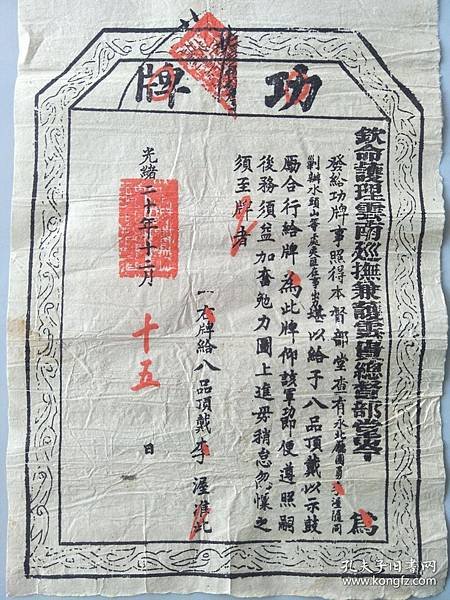 功牌
欽命護理雲南巡撫兼護雲貴總督部堂史 為
發給功牌事照得本督部堂查有永北廳團首李渥隨同
剿辦水頭山等處夷匪在事出
逺以給予八品頂戴以示鼓
勵合行給牌為此牌仰該軍功即便遵照嗣
後務須益加奮勉力圖上進毋稍怠忽懍之
須至牌者
一右牌給八品頂戴李渥淮此
光緒二十年十二月十五日
孔夫子旧书网
www.kongfz.com